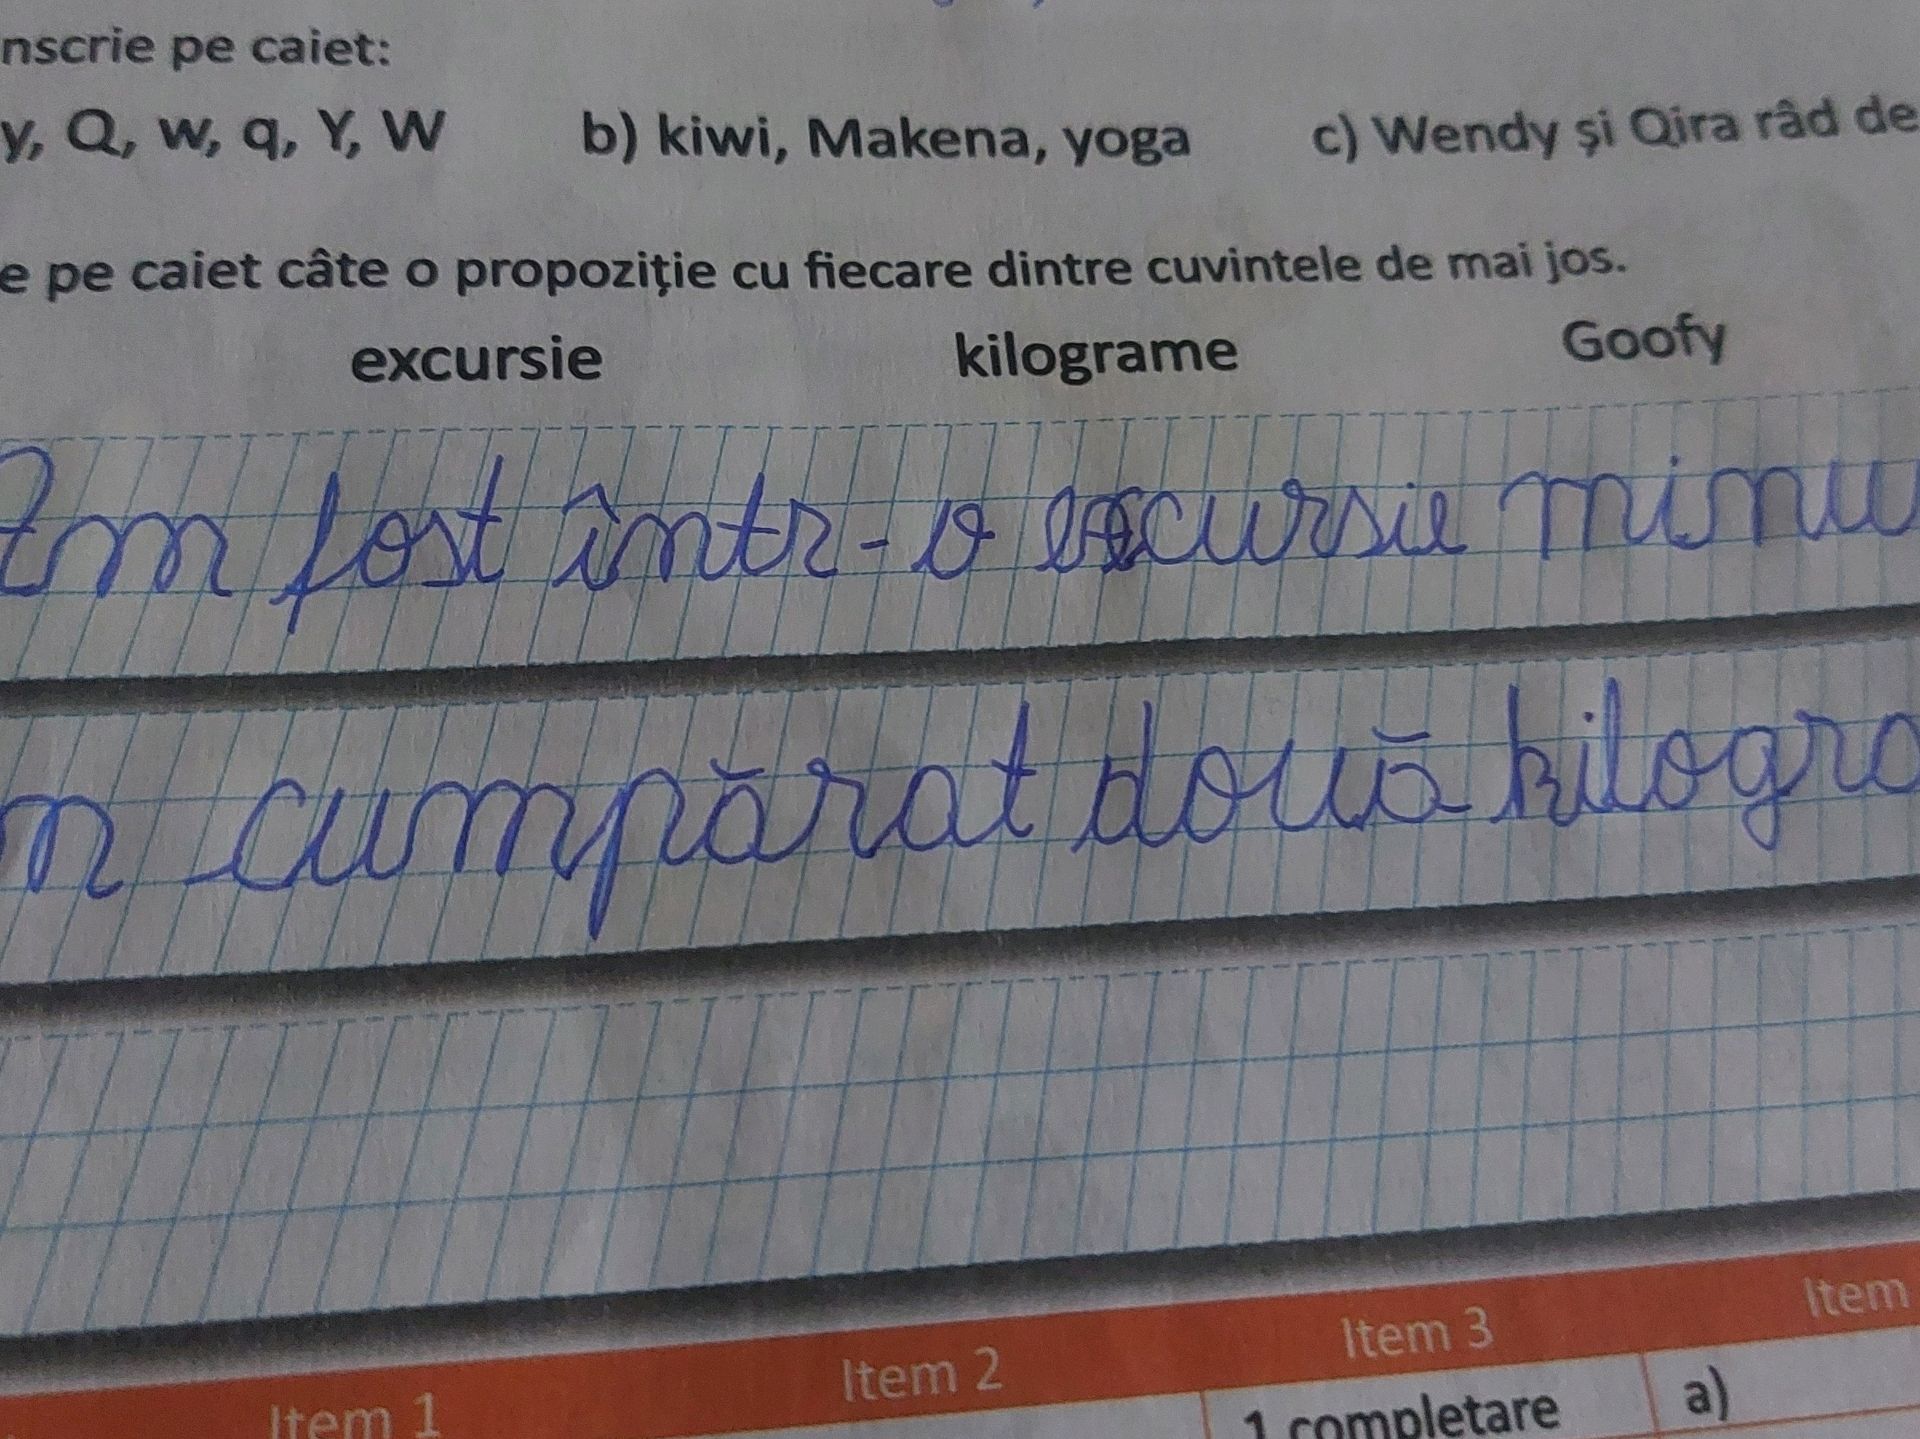 nscrie pe caiet:
y, Q, w, q, Y, W b) kiwi, Makena, yoga c) Wendy și Qira râd de
e pe caiet câte o propoziție cu fiecare dintre cuvintele de mai jos.
excursie kilograme Goofy
Am fost într-o excursie minu
m cumpărat două kilogra
Item 1 Item 2 Item 3 Item
1 completare a)